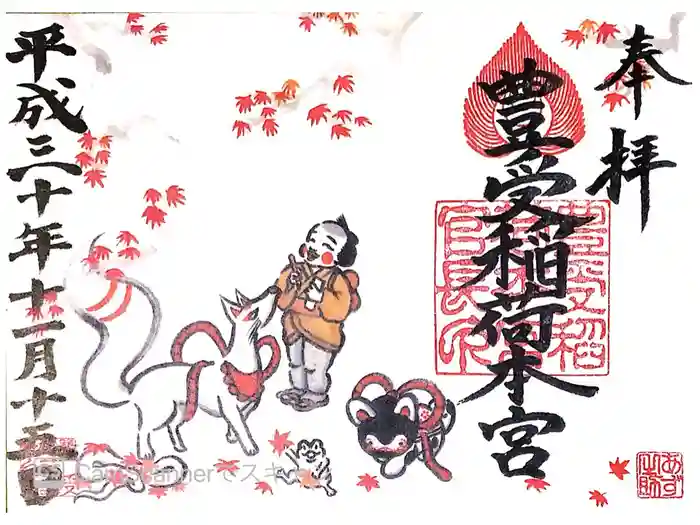 奉拝
豊受稲荷本宮
平成三十年十一月十五日
CamScannerでスキャン